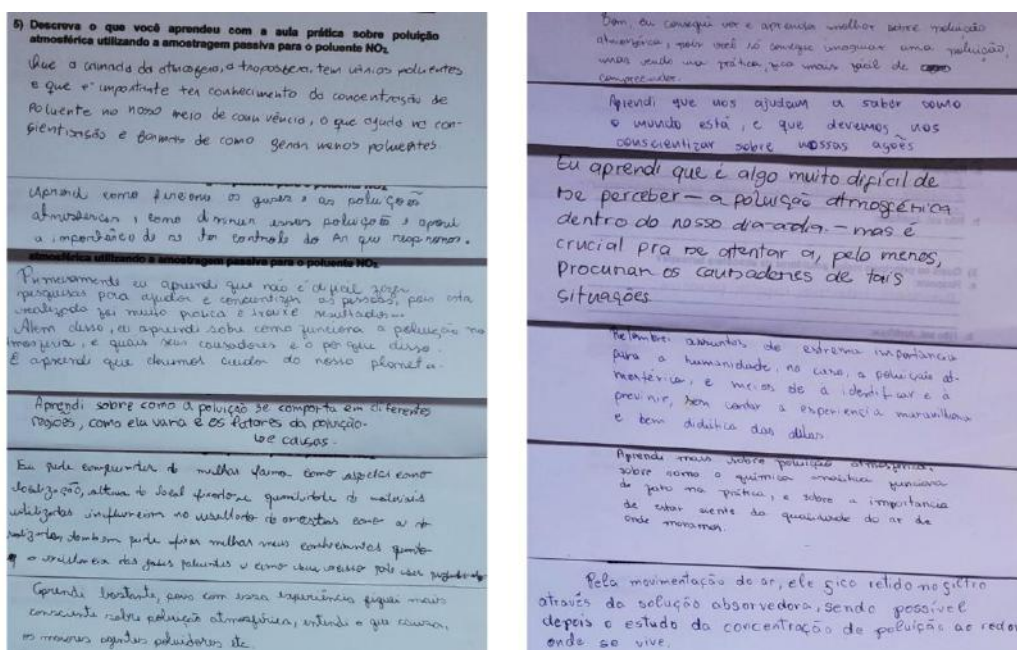 5) Descreva o que você aprendeu com a aula prática sobre poluição
atmosférica utilizando a amostragem passiva para o poluente NO₂
Que a camada da atmosfera, a troposfera, tem vários poluentes
e que é importante ter conhecimento da concentração de
Poluente no nosso meio de convivência, o que ajuda na con-
sientização e formas de como gerar menos poluentes
Aprendi como funciona os gases e as poluições
atmosféricas, como diminuir essas poluições e aprendi
a importância de se ter controle do Ar que respiramos.
atmosférica utilizando a amostragem passiva para o poluente NO₂
Primeiramente eu aprendi que não é difícil fazer
pesquisas para ajudar e conscientizar as pessoas, pois esta
realizada foi muito prática e trouxe resultados
Além disso, eu aprendi sobre como funciona a poluição na
atmosfera, e quais seus causadores e o por que disso.
E aprendi que devemos cuidar do nosso planeta.
Aprendi sobre como a poluição se comporta em diferentes
regiões, como ela varia e os fatores da poluição.
e causas.
Eu pude compreender de melhor forma como aspectos como
localização, altura do local quantidade de materiais
utilizados influenciam no resultado de amostras como a
realizada, também pude meus conhecimentos quanto
a dos gases poluentes e como esse pode ser
Aprendi bastante, pois com essa experiência fiquei mais
consciente sobre poluição atmosférica, entendi o que causa,
os maiores agentes poluidores etc.
Bom, eu consegui ver e aprender melhor sobre poluição
atmosférica, pois você só consegue imaginar uma poluição,
mas vendo na prática, fica mais fácil de
compreender.
Aprendi que nos ajudam a saber como
o mundo está, e que devemos nos
conscientizar sobre nossas ações
Eu aprendi que é algo muito difícil de
se perceber — a poluição atmosférica
dentro do nosso dia-a-dia — mas é
crucial pra se atentar a, pelo menos,
procurar os causadores de tais
situações
Relembrei assuntos de extrema importância
para a humanidade, no caso, a poluição at-
mosférica, e meios de a identificar e a
previnir, sem contar a experiência maravilhosa
e bem didática das aulas.
Aprendi mais sobre poluição atmosférica,
sobre como a química analítica funciona
de fato na prática, e sobre a importancia
de estar ciente da qualidade do ar de
onde moramos.
Pela movimentação do ar, ele fica retido no filtro
através da solução absorvedora, sendo possível
depois o estudo da concentração de poluição ao redor
onde se vive.